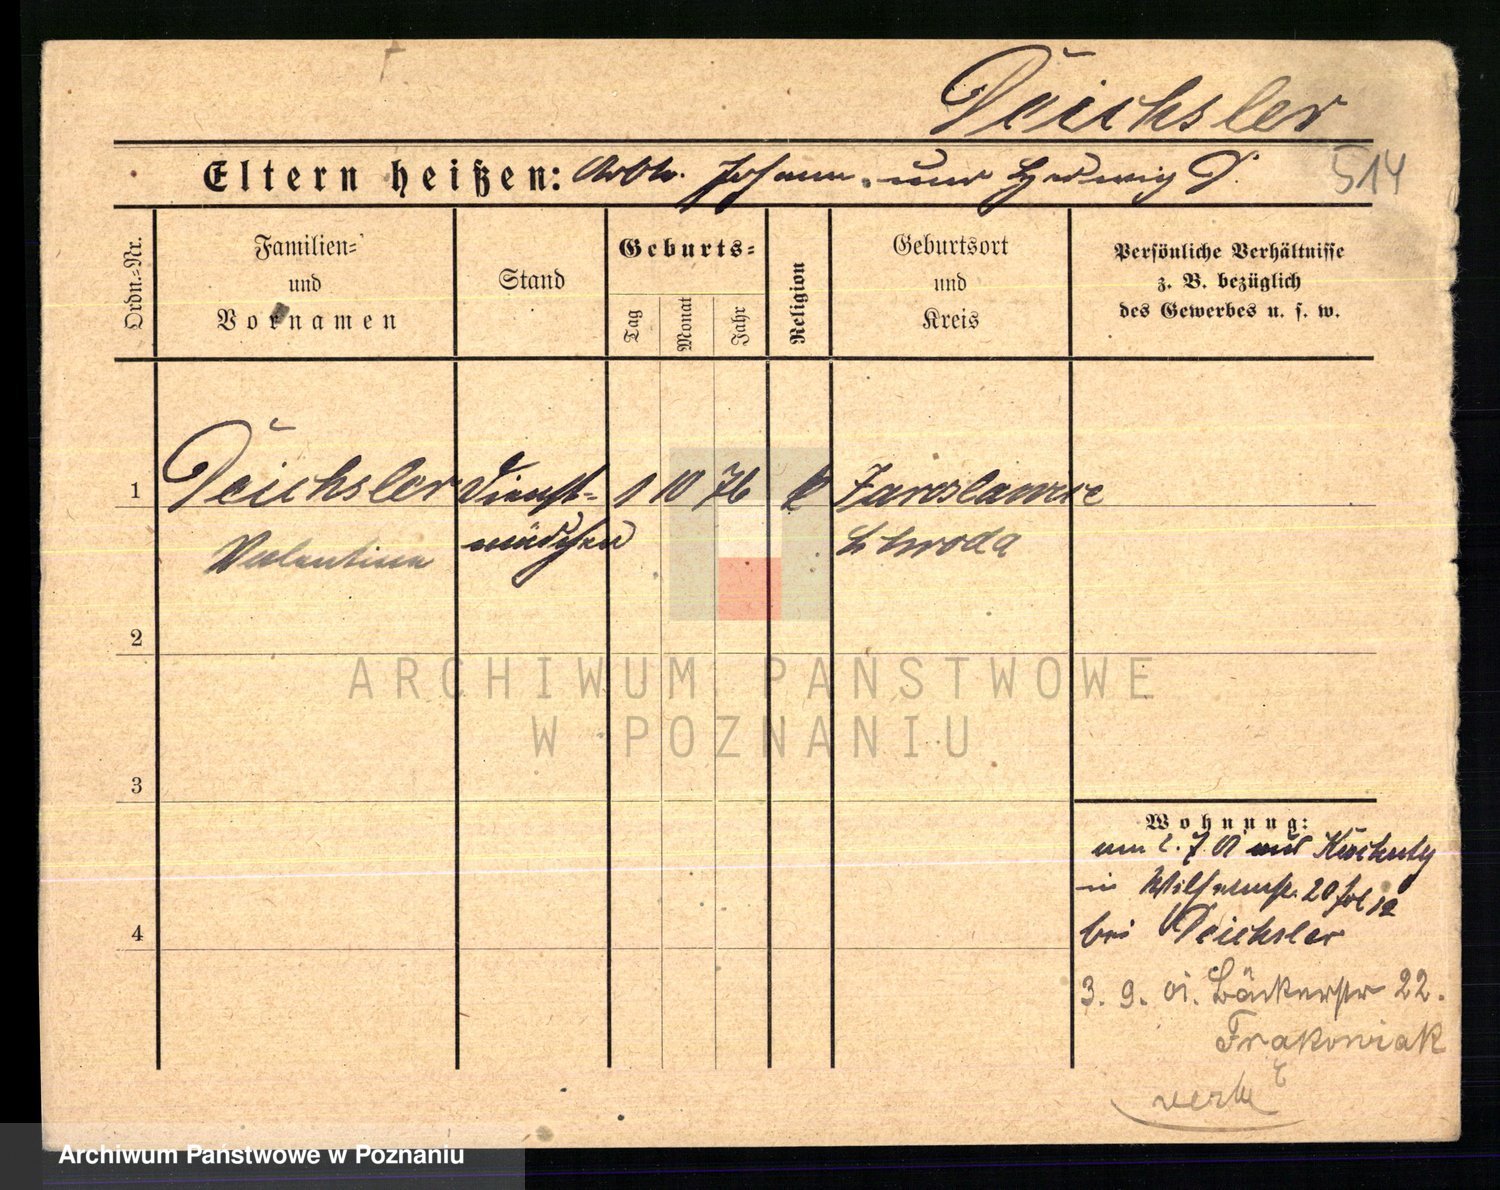 Deichsler
Eltern heißen: Arb. Johann und Hedwig D. 514
Ordn.-Nr.
Familien-
und
Vornamen
Stand
Geburts-
Tag
Monat
Jahr
Religion
Geburtsort
und
Kreis
Persönliche Verhältnisse
z. B. bezüglich
des Gewerbes u. s. w.
1 Deichsler Dienst- 1 10 76 k Jaroslawice
Valentina mädchen Schroda
2
3
4
Wohnung:
am 2.7.01 aus
in Wilhelmstr. 20
bei Deichsler
3. 9. 01. Bäckerstr 22.
Frakowiak
ARCHIWUM PAŃSTWOWE
W POZNANIU
Archiwum Państwowe w Poznaniu